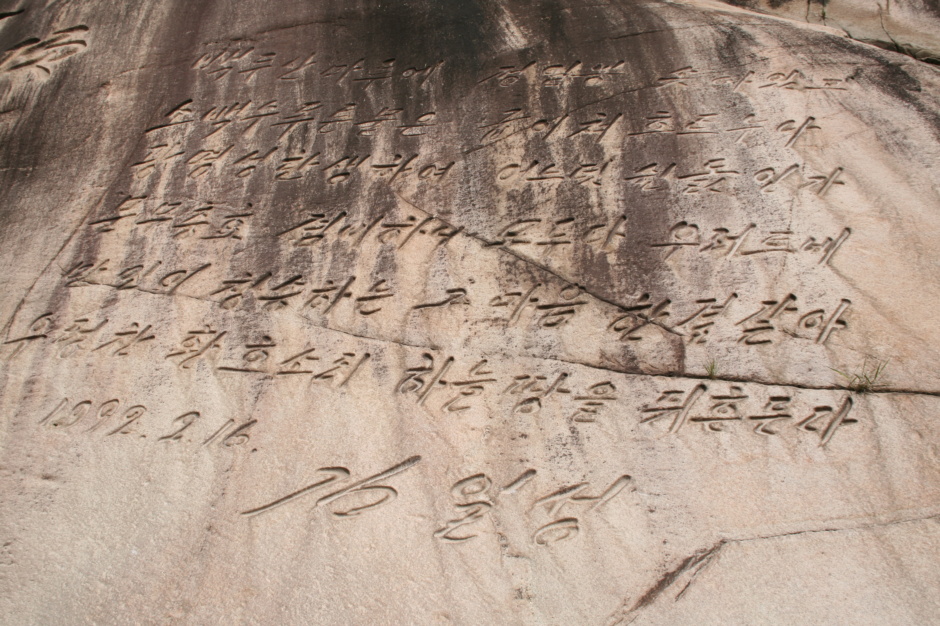 백두산마루에 정일봉 솟아있고
소백수푸른물은 굽이쳐 흐르누나
광명성탄생하여 어느덧 쉰돐인가
문무충효 겸비하니 모두다 우러르네
만민이 칭송하는 그 마음 한결같아
우렁찬 환호소리 하늘땅을 뒤흔든다
1992. 2. 16
김일성